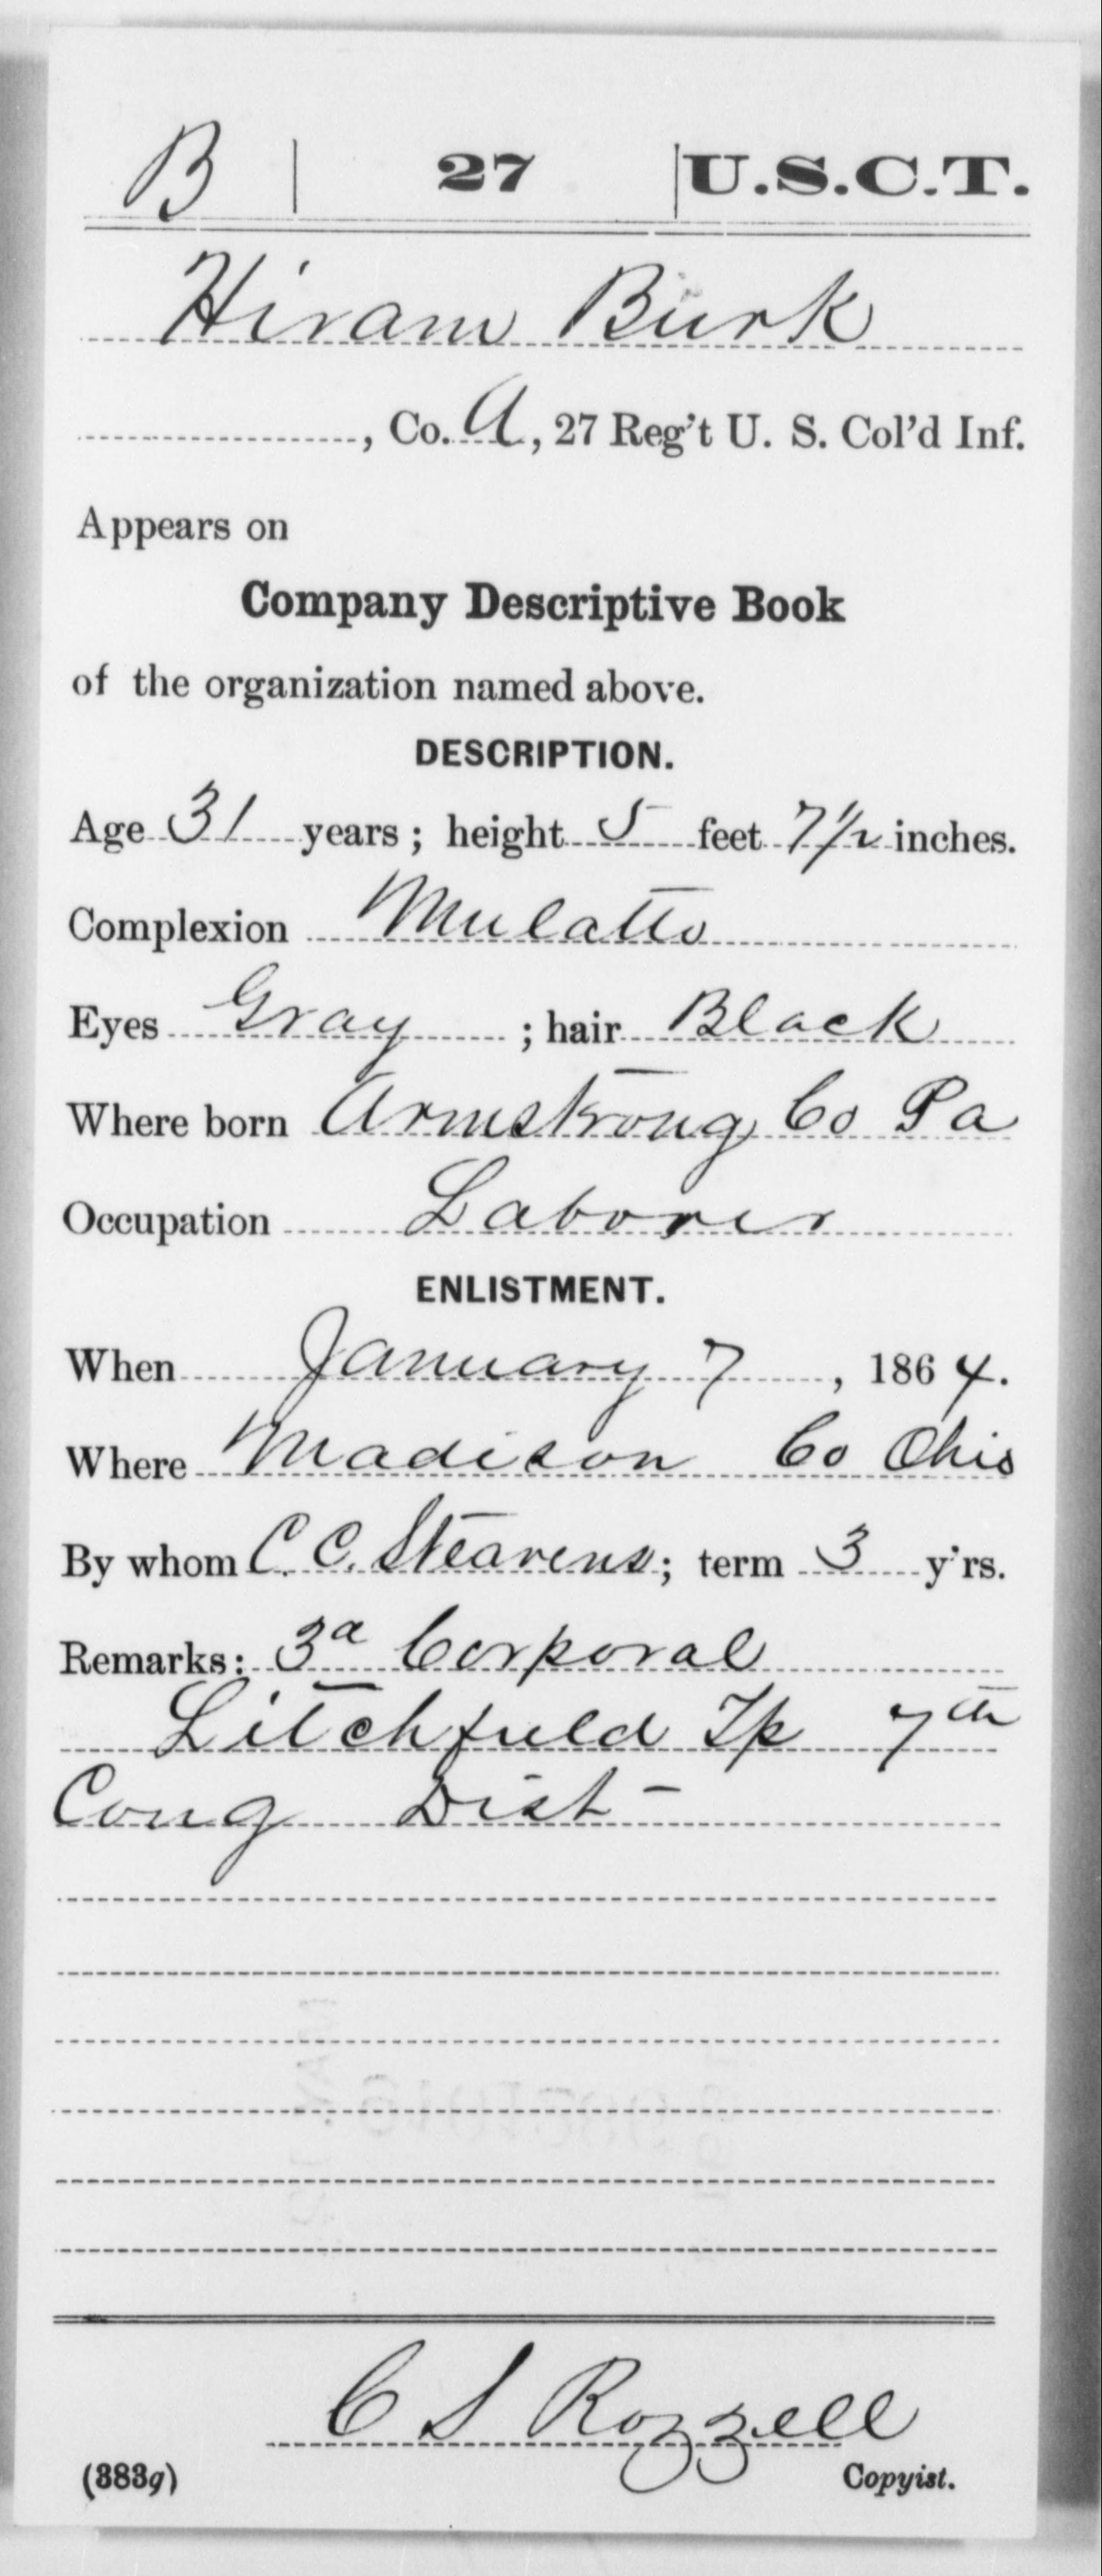 B | 27 | U.S.C.T.
Hiram Burk
, Co. A, 27 Reg't U. S. Col'd Inf.
Appears on
Company Descriptive Book
of the organization named above.
DESCRIPTION.
Age 31 years; height 5 feet 7½ inches.
Complexion Mulatto
Eyes Gray ; hair Black
Where born Armstrong Co Pa
Occupation Laborer
ENLISTMENT.
When January 7, 1864.
Where Madison Co Ohio
By whom C. C. Stearens; term 3 y'rs.
Remarks: 3d Corporal
Litchfield Tp 7th
Cong Dist -
C S Rozzell
(383g) Copyist.